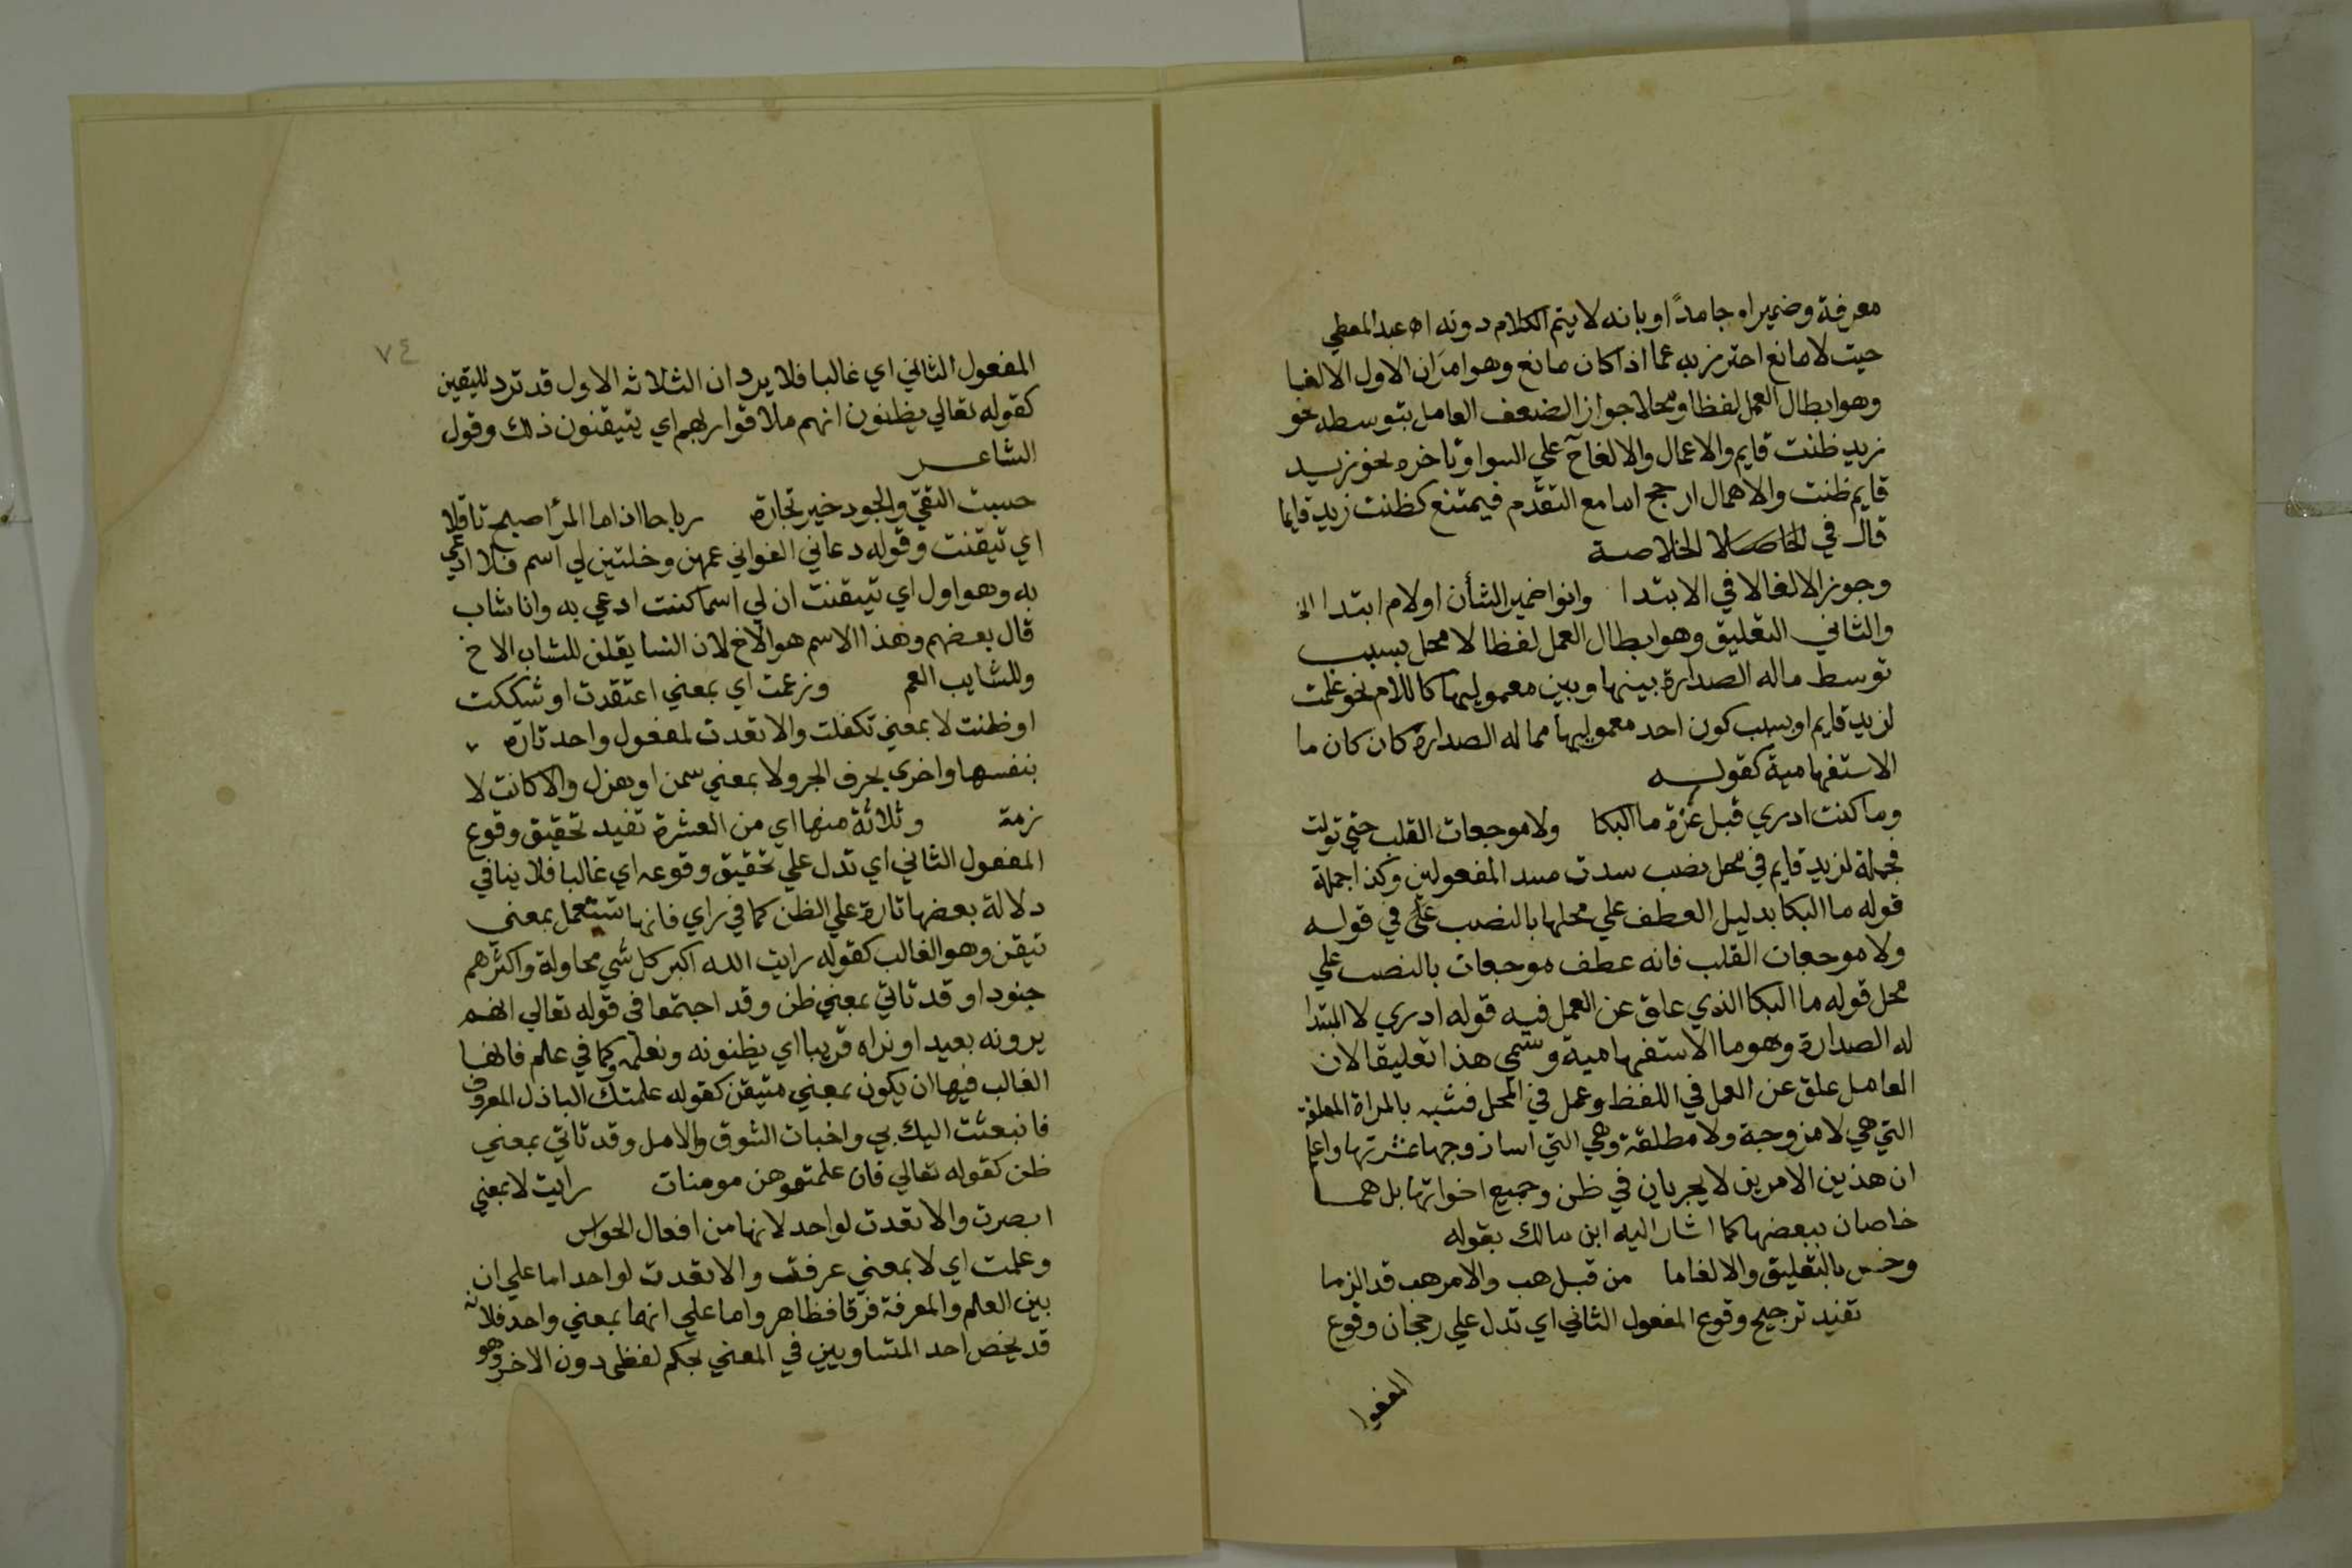 معرفة وضميرا وجامدًا وبانه لا يتم الكلام دونه اه عبد المعطي
حيث لا مانع احترز به عما اذا كان مانع وهوامران الاول الالغا
وهو ابطال العمل لفظا ومحلا جوازا لضعف العامل بتوسطه نحو
زيد ظننت قايم والاعمال والالغاح علي السوا وتاخره نحو زيد
قايم ظننت والاهمال ارجح اما مع التقدم فيمتنع كظننت زيد قايما
قال في الخلاصة
وجوز الالغا لا في الابتدا وانوا ضمير الشأن او لام ابتدا الخ
والثاني التعليق وهو ابطال العمل لفظا لا محل بسبب
توسط ماله الصدارة بينها وبين معموليها كاللام نحو علمت
لزيد قايم او بسبب كون احد معموليها مما له الصدارة كان كان ما
الاستفهامية كقوله
وما كنت ادري قبل عزة ما البكا ولا موجعات القلب حتي تولت
فجملة لزيد قايم في محل نصب سدت مسد المفعولين وكذا جملة
قوله ما البكا بدليل العطف علي محلها بالنصب في قوله
ولا موجعات القلب فانه عطف موجعات بالنصب علي
محل قوله ما البكا الذي علق عن العمل فيه قوله ادري لا المبتدا
له الصدارة وهو ما الاستفهامية وسمي هذا تعليقا لان
العامل علق عن العمل في اللفظ وعمل في المحل فشبه بالمراة المعلقة
التي هي لا مزوجة ولا مطلقة وهي التي اسا زوجها عشرتها واعلم
ان هذين الامرين لا يجريان في ظن وجميع اخواتها بل هما
خاصان ببعضها كما اشار اليه ابن مالك بقوله
وخص بالتعليق والالغا ما من قبل هب والامر هب قد الزما
تفيد ترجيح وقوع المفعول الثاني اي تدل علي رجحان وقوع
المفعول
٧٤
المفعول الثاني اي غالبا فلا يرد ان الثلاثه الاول قد ترد لليقين
كقوله تعالي يظنون انهم ملاقوا ربهم اي يتيقنون ذلك وقول
الشاعر
حسبت التقي والجود خير تجارة رباحا اذا ما المرأ اصبح ثاقلا
اي تيقنت وقوله دعاني الغواني عمهن وخلتني لي اسم فلا ادعي
به وهو اول اي تيقنت ان لي اسما كنت ادعي به وانا شاب
قال بعضهم وهذا الاسم هو الاخ لان النسا يقلن للشاب الاخ
وللشايب العم وزعمت اي بمعني اعتقدت او شككت
او ظننت لا بمعني تكفلت والا تعدت لمفعول واحد تارة
بنفسها واخري بحرف الجر ولا بمعني سمن او هزل والا كانت لا
زمة وثلاثة منها اي من العشرة تفيد تحقيق وقوع
المفعول الثاني اي تدل علي تحقيق وقوعه اي غالبا فلا ينافي
دلالة بعضها تارة علي الظن كما في راي فانها تستعمل بمعني
تيقن وهو الغالب كقوله رايت الله اكبر كل شي محاولة واكثرهم
جنودا وقد تاتي بمعني ظن وقد اجتمعا في قوله تعالي انهم
يرونه بعيدا ونراه قريبا اي يظنونه ونعلمه وكما في علم فانها
الغالب فيها ان يكون بمعني متيقن كقوله علمتك الباذل المعروف
فانبعثت اليك بي واخبات الشوق والامل وقد تاتي بمعني
ظن كقوله تعالي فان علمتموهن مومنات رايت لا بمعني
ابصرت والا تعدت لواحد لانها من افعال الحواس
وعلمت اي لا بمعني عرفت والا تعدت لواحد اما علي ان
بين العلم والمعرفة فرقا فظاهر واما علي انهما بمعني واحد فلانه
قد يخص احد المتساويين في المعني بحكم لفظي دون الاخر وهو